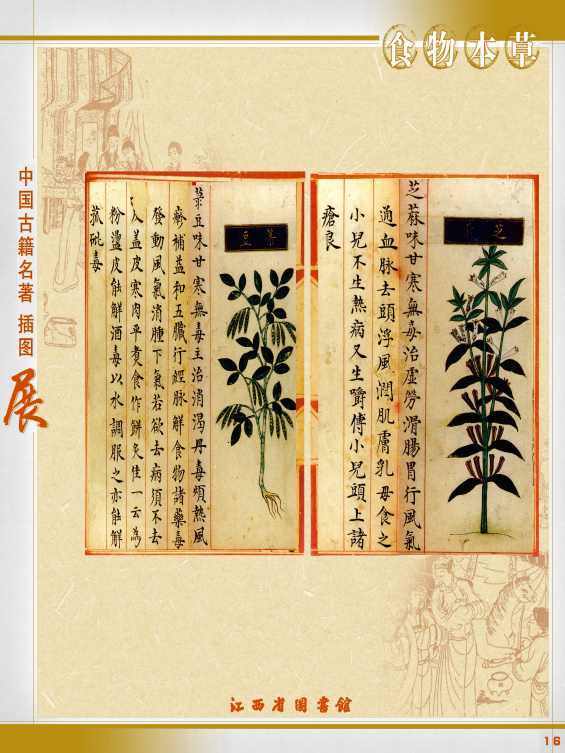 食物本草
中国古籍名著 插图
展
芝蔴味甘寒無毒治虛勞滑腸胃行風氣
通血脉去頭浮風潤肌膚乳母食之
小兒不生熱病又生嚼傅小兒頭上諸
瘡良
芝
菉豆
菉豆味甘寒無毒主治消渴丹毒煩熱風
疹補益和五臟行經脉解食物諸藥毒
發動風氣消腫下氣若欲去病須不去
皮盖皮寒肉平煮食作餅炙佳一云為
粉盪皮能解酒毒以水調服之亦能解
菰砒毒
江西省图書館
16